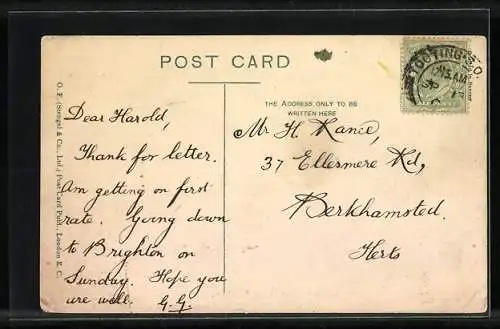 POST CARD
THE ADDRESS ONLY TO BE
WRITTEN HERE
O. F. (Stengel & Co., Ltd.) Post Card Publ., London E. C.
TOOTING S.O.
Dear Harold,
Thank for letter.
Am getting on first
rate. Going down
to Brighton on
Sunday. Hope you
are well. G.G.
Mr H. Rance,
37 Ellesmere Rd,
Berkhamsted.
Herts